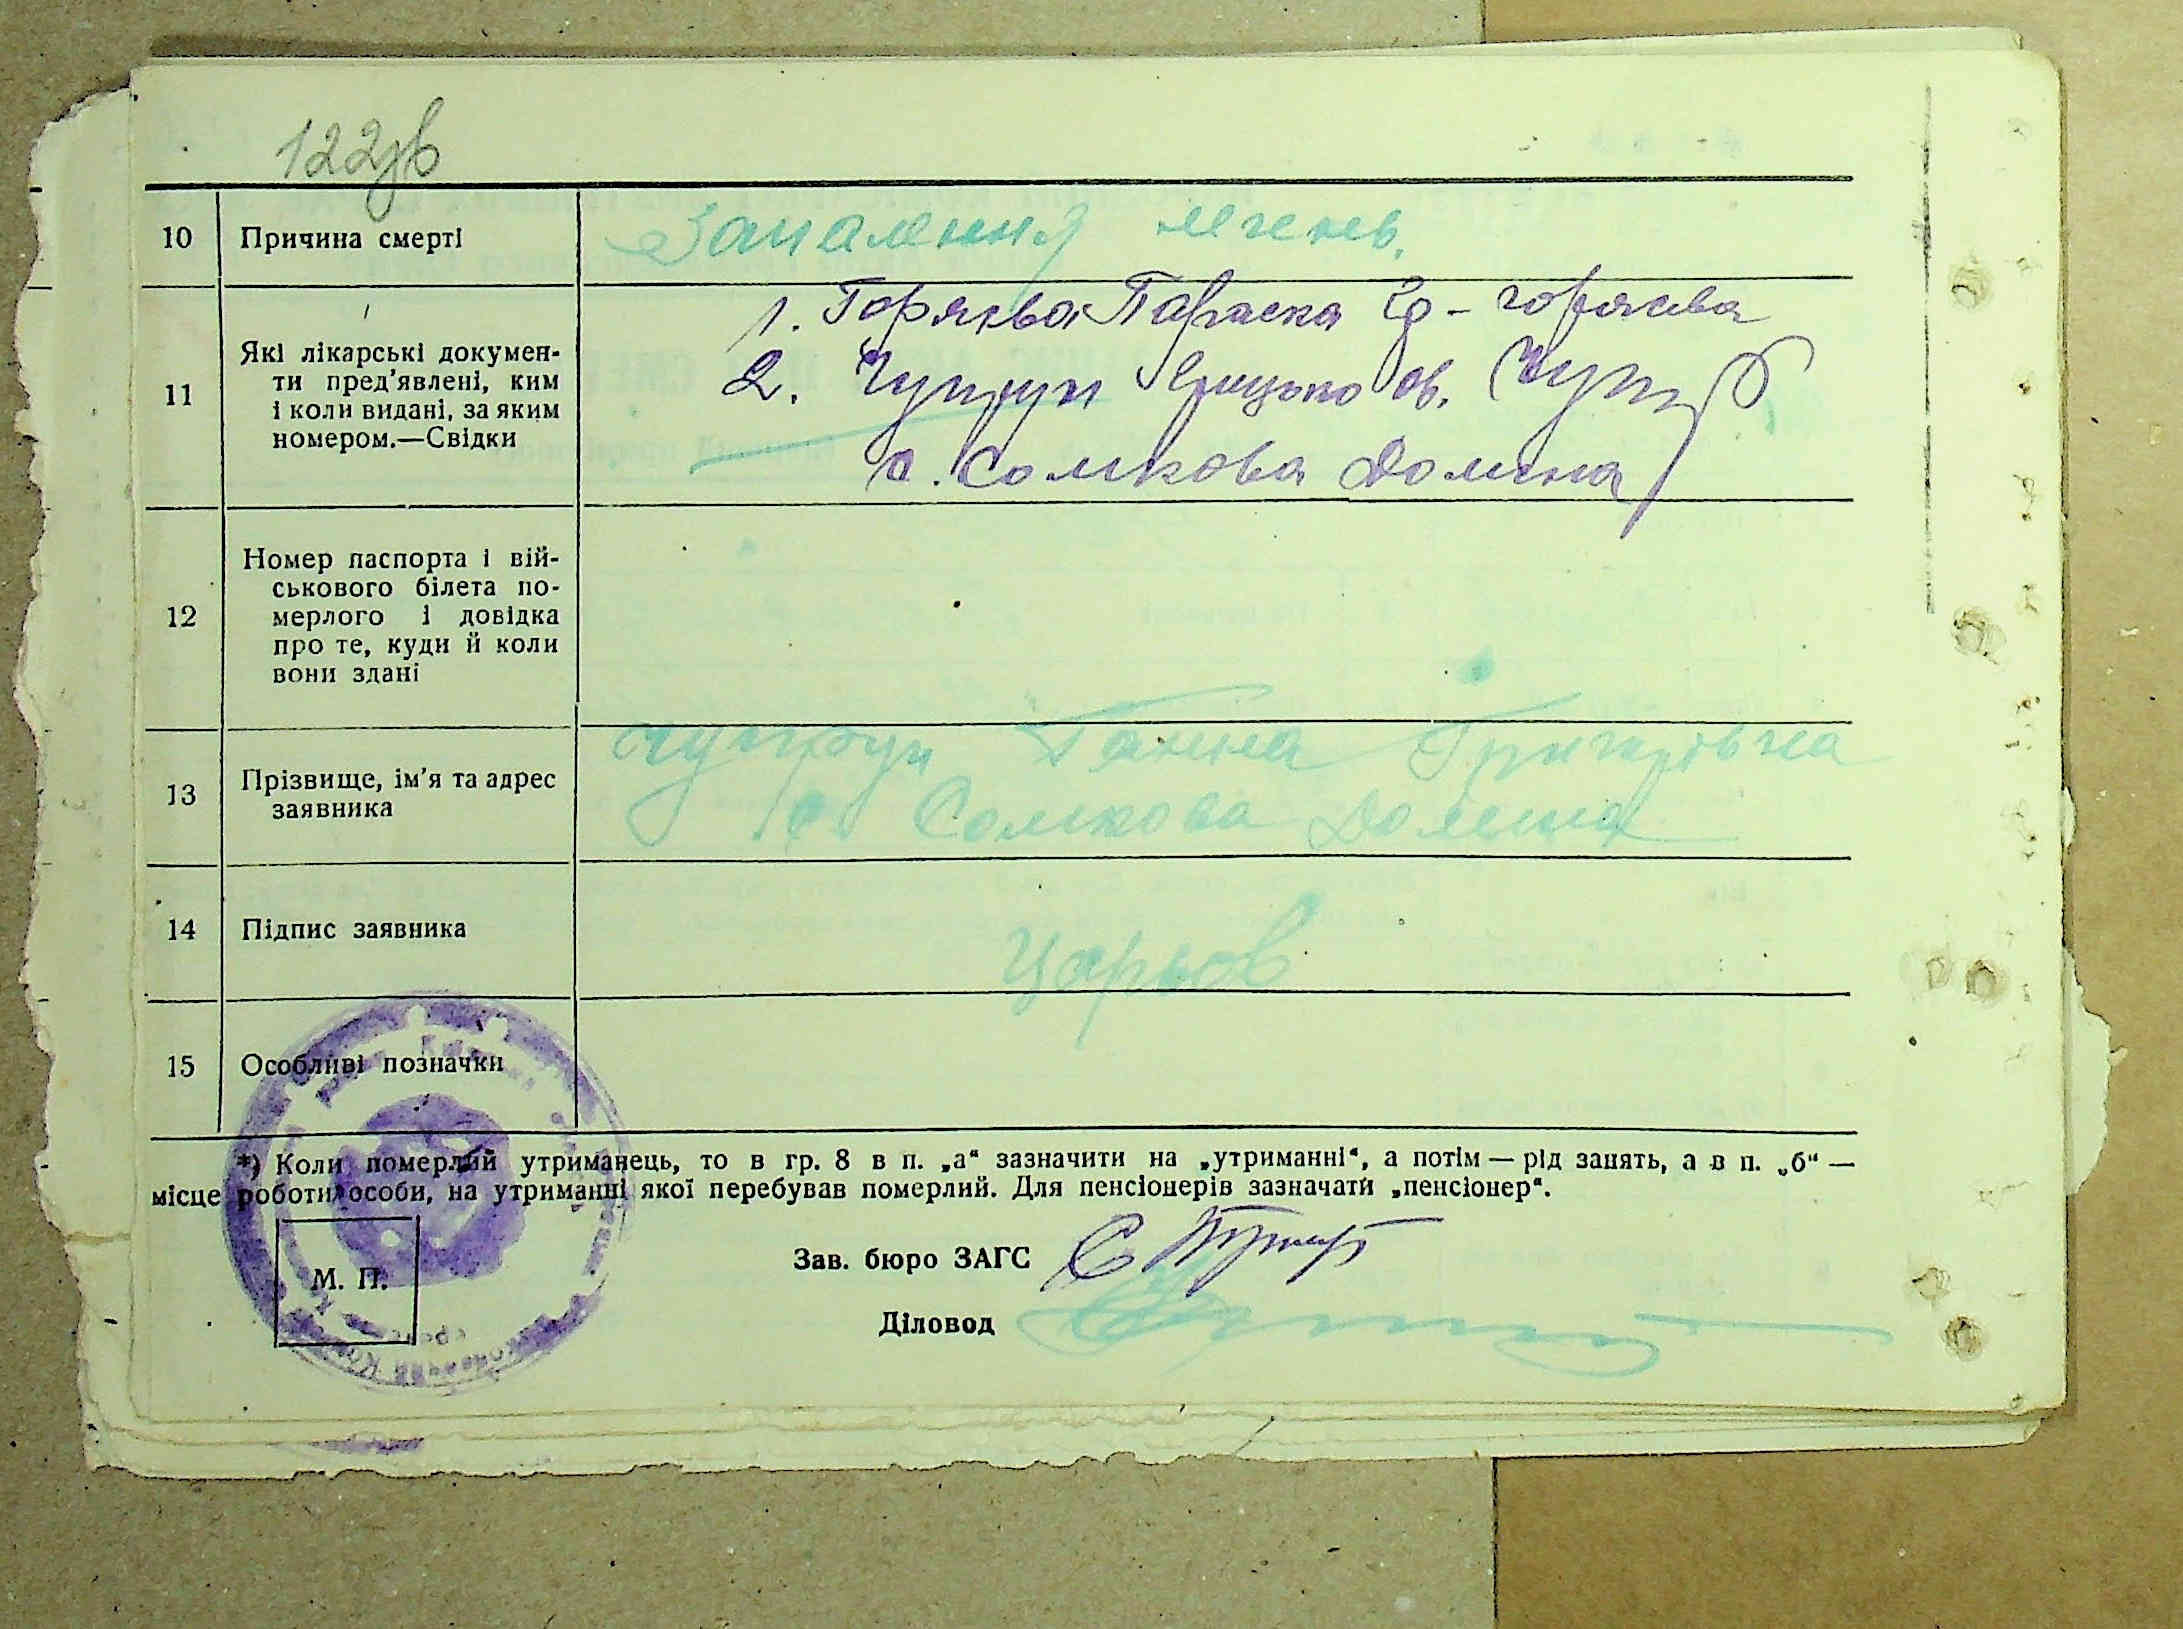 122зв
10 Причина смерті Запалення легень.
11 Які лікарські документи пред'явлені, ким і коли видані, за яким номером.—Свідки
1. Горяква Параска
2. Чупрун Грицько Ів.
с. Сомкова Долина
12 Номер паспорта і військового білета померлого і довідка про те, куди й коли вони здані
13 Прізвище, ім'я та адрес заявника
Чупрун Ганна Григорівна
с Сомкова Долина
14 Підпис заявника
15 Особливі позначки
*) Коли померлий утриманець, то в гр. 8 в п. „а“ зазначити на „утриманні“, а потім — рід занять, а в п. „б“ —
місце роботи особи, на утриманні якої перебував померлий. Для пенсіонерів зазначати „пенсіонер“.
Зав. бюро ЗАГС
М. П.
Діловод